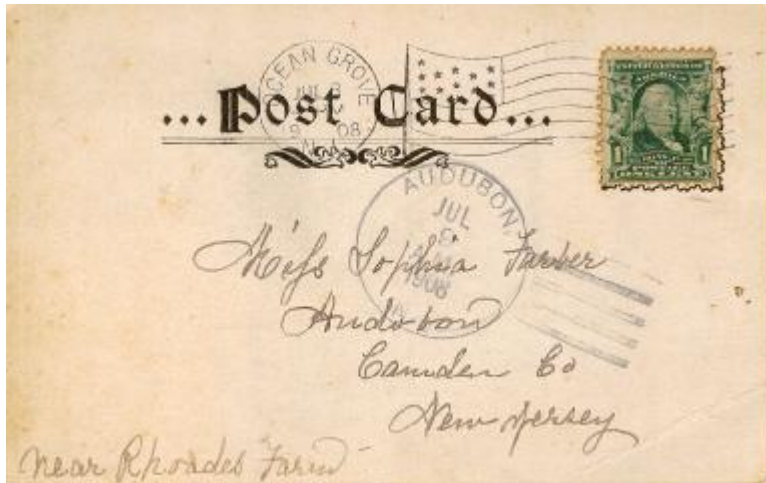 OCEAN GROVE
JUL 8
1908
N.J.
...Post Card...
1 1
AUDUBON,
JUL
9
1908
Miss Sophia Farber
Audobon
Camden Co
New Jersey
near Rhoades Farm